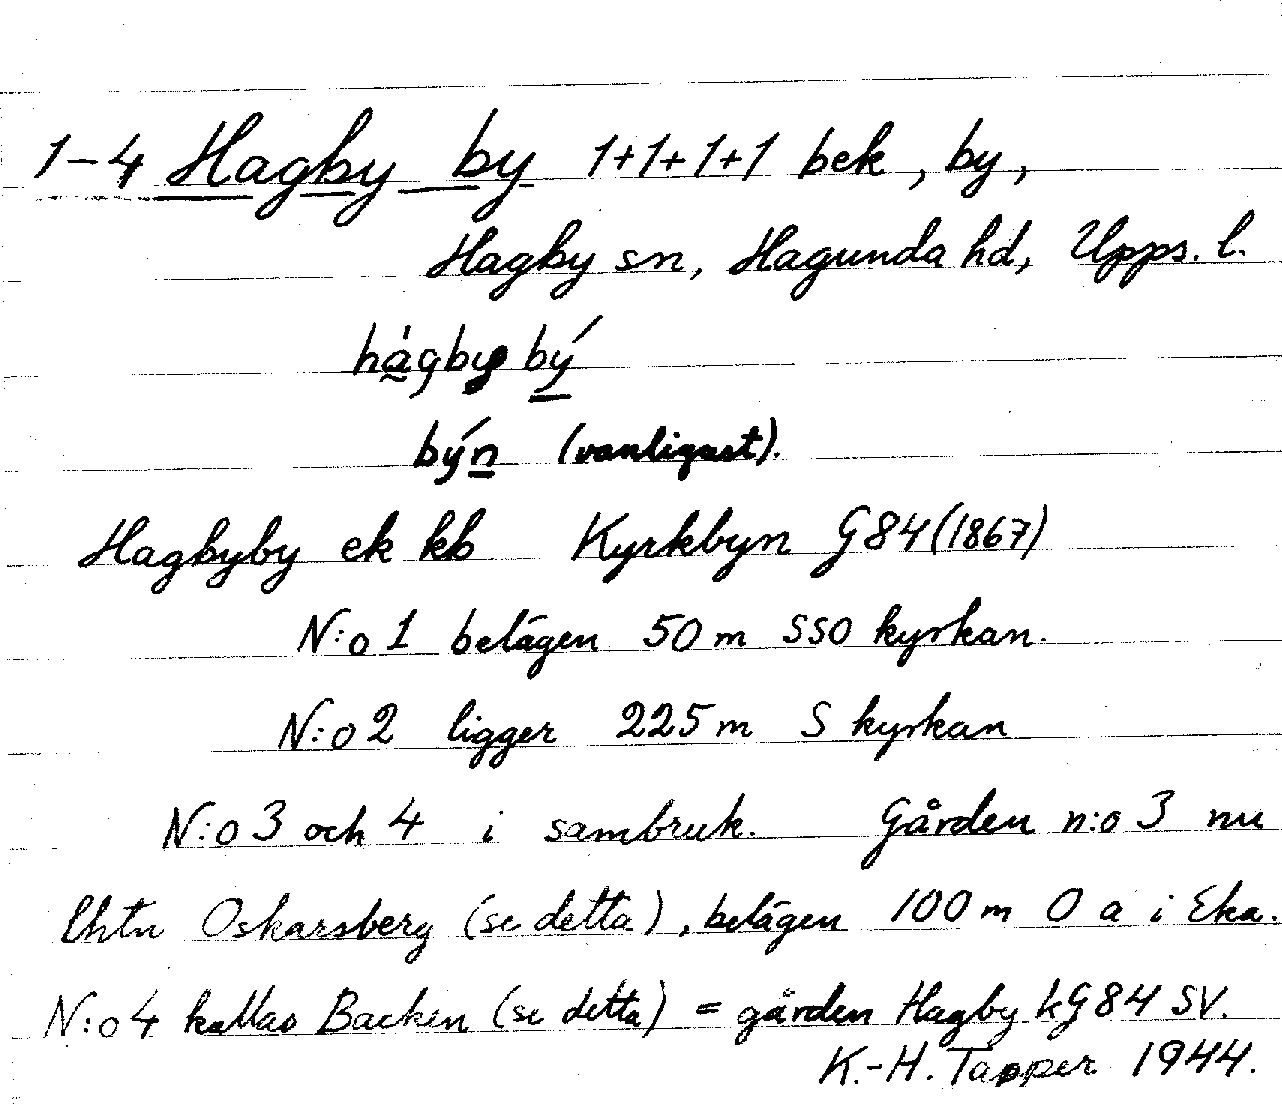 1-4 Hagby by 1+1+1+1 bek, by,
Hagby sn, Hagunda hd, Upps. l.
hágby bý
býn (vanligast).
Hagbyby ek kb Kyrkbyn G84 (1867)
N:o 1 belägen 50 m SSO kyrkan.
N:o 2 ligger 225 m S kyrkan
N:o 3 och 4 i sambruk. Gården n:o 3 nu
lhtn Oskarsberg (se detta), belägen 100 m O a i Eka.
N:o 4 kallas Backen (se detta) = gården Hagby kG84 SV.
K.-H. Tapper 1944.